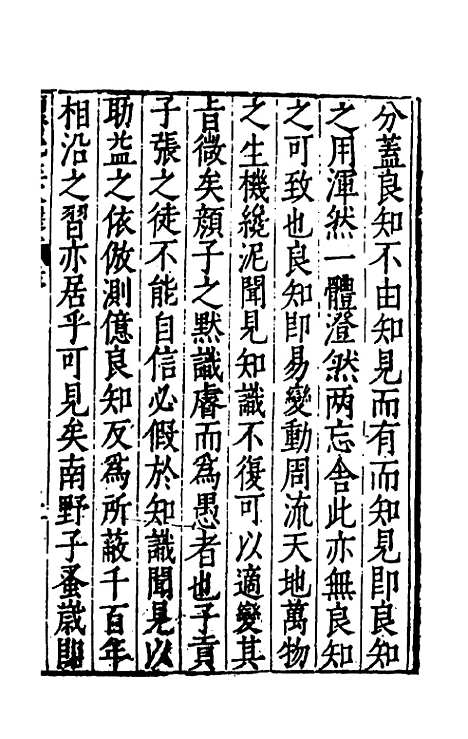 分蓋良知不由知見而有而知見即良知
之用渾然一體澄然两忘舍此亦無良知
之可致也良知即易變動周流天地萬物
之生機纔泥聞見知識不復可以適變其
旨微矣顔子之默識睿而為愚者也子貢
子張之徒不能自信必假於知識聞見以
助益之依倣測億良知反為所蔽千百年
相沿之習亦居乎可見矣南野子蚤歲即